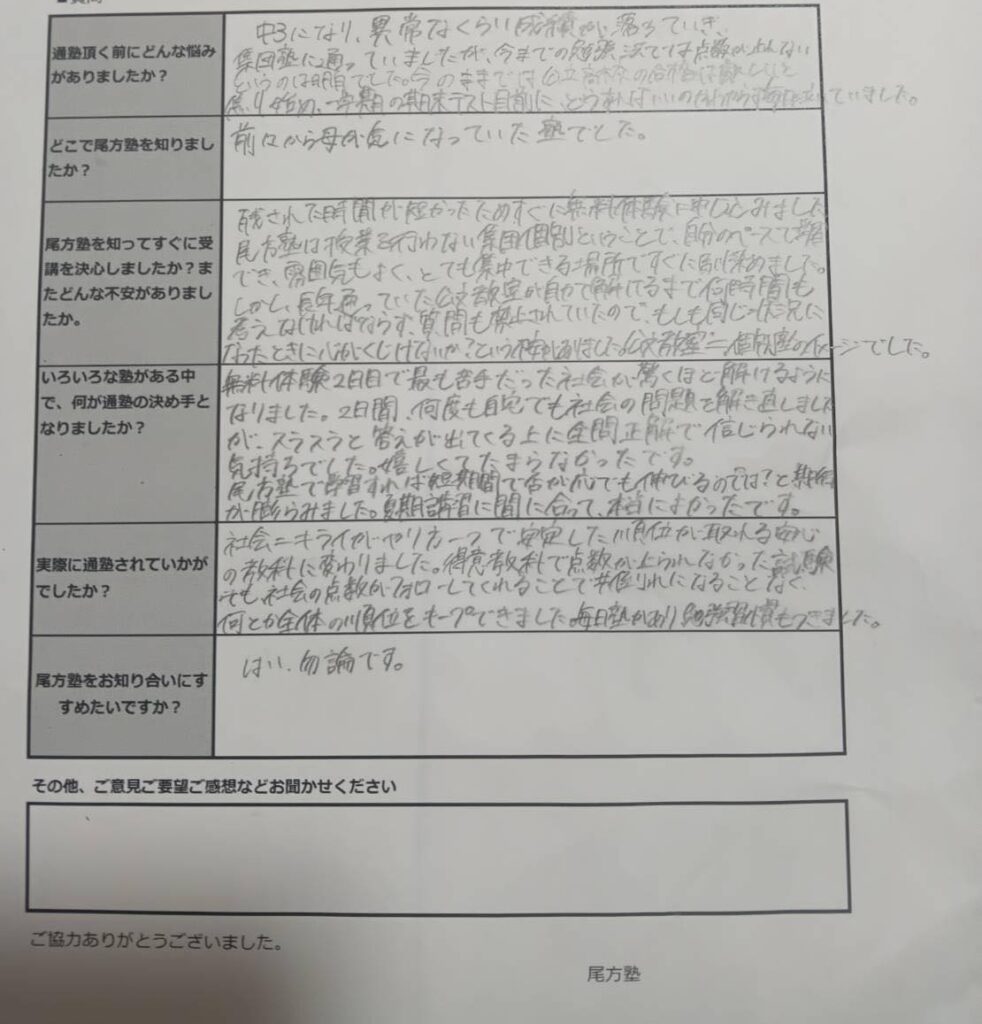 通塾頂く前にどんな悩み
がありましたか？
中3になり、異常なくらい成績が落ちていき、
集団塾に通っていましたが、今までの勉強法では点数が上がらない
というのは明白でした。今のままでは公立高校の合格は難しいと
焦り始め、一学期の期末テスト目前に、どうすればいいのかわからず毎日泣いていました。
どこで尾方塾を知りまし
たか？
前々から母が気になっていた塾でした。
尾方塾を知ってすぐに受
講を決心しましたか？ま
たどんな不安がありまし
たか。
残された時間が短かったためすぐに無料体験に申し込みました
尾方塾は授業を行わない集団個別ということで、自分のペースで学習
でき、雰囲気もよく、とても集中できる場所ですぐに決めました。
しかし、長年通っていた公文教室が自力で解けるまで何時間も
考えなければならず、質問も禁止されていたので、もしも同じ状況に
なったときに心がくじけないか？という不安がありました。公文教室＝個別塾のイメージでした。
いろいろな塾がある中
で、何が通塾の決め手と
なりましたか？
無料体験2日目で最も苦手だった社会が驚くほど解けるように
なりました。2日間、何度も自宅でも社会の問題を解き直しました
が、スラスラと答えが出てくる上に全問正解で信じられない
気持ちでした。嬉しくてたまらなかったです。
尾方塾で学習すれば短期間で否が応でも伸びるのでは？と期待
が膨らみました。夏期講習に間に合って、本当によかったです。
実際に通塾されていかが
でしたか？
社会＝キライが 安定した順位が取れる安心
の教科に変わりました。得意教科で点数が上げられなかった試験
でも、社会の点数がフォローしてくれることで共倒れになることなく、
何とか全体の順位をキープできました。毎日塾があり 学習習慣もつきました。
尾方塾をお知り合いにす
すめたいですか？
はい、勿論です。
その他、ご意見ご要望ご感想などお聞かせください
ご協力ありがとうございました。
尾方塾